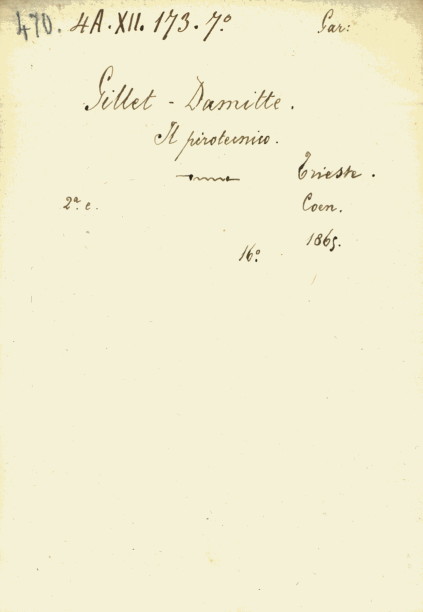 470. 4A. XII. 173. 7º Gar:
Gillet - Damitte.
Il pirotecnico.
Trieste.
2ª e. Coen.
1865.
16º